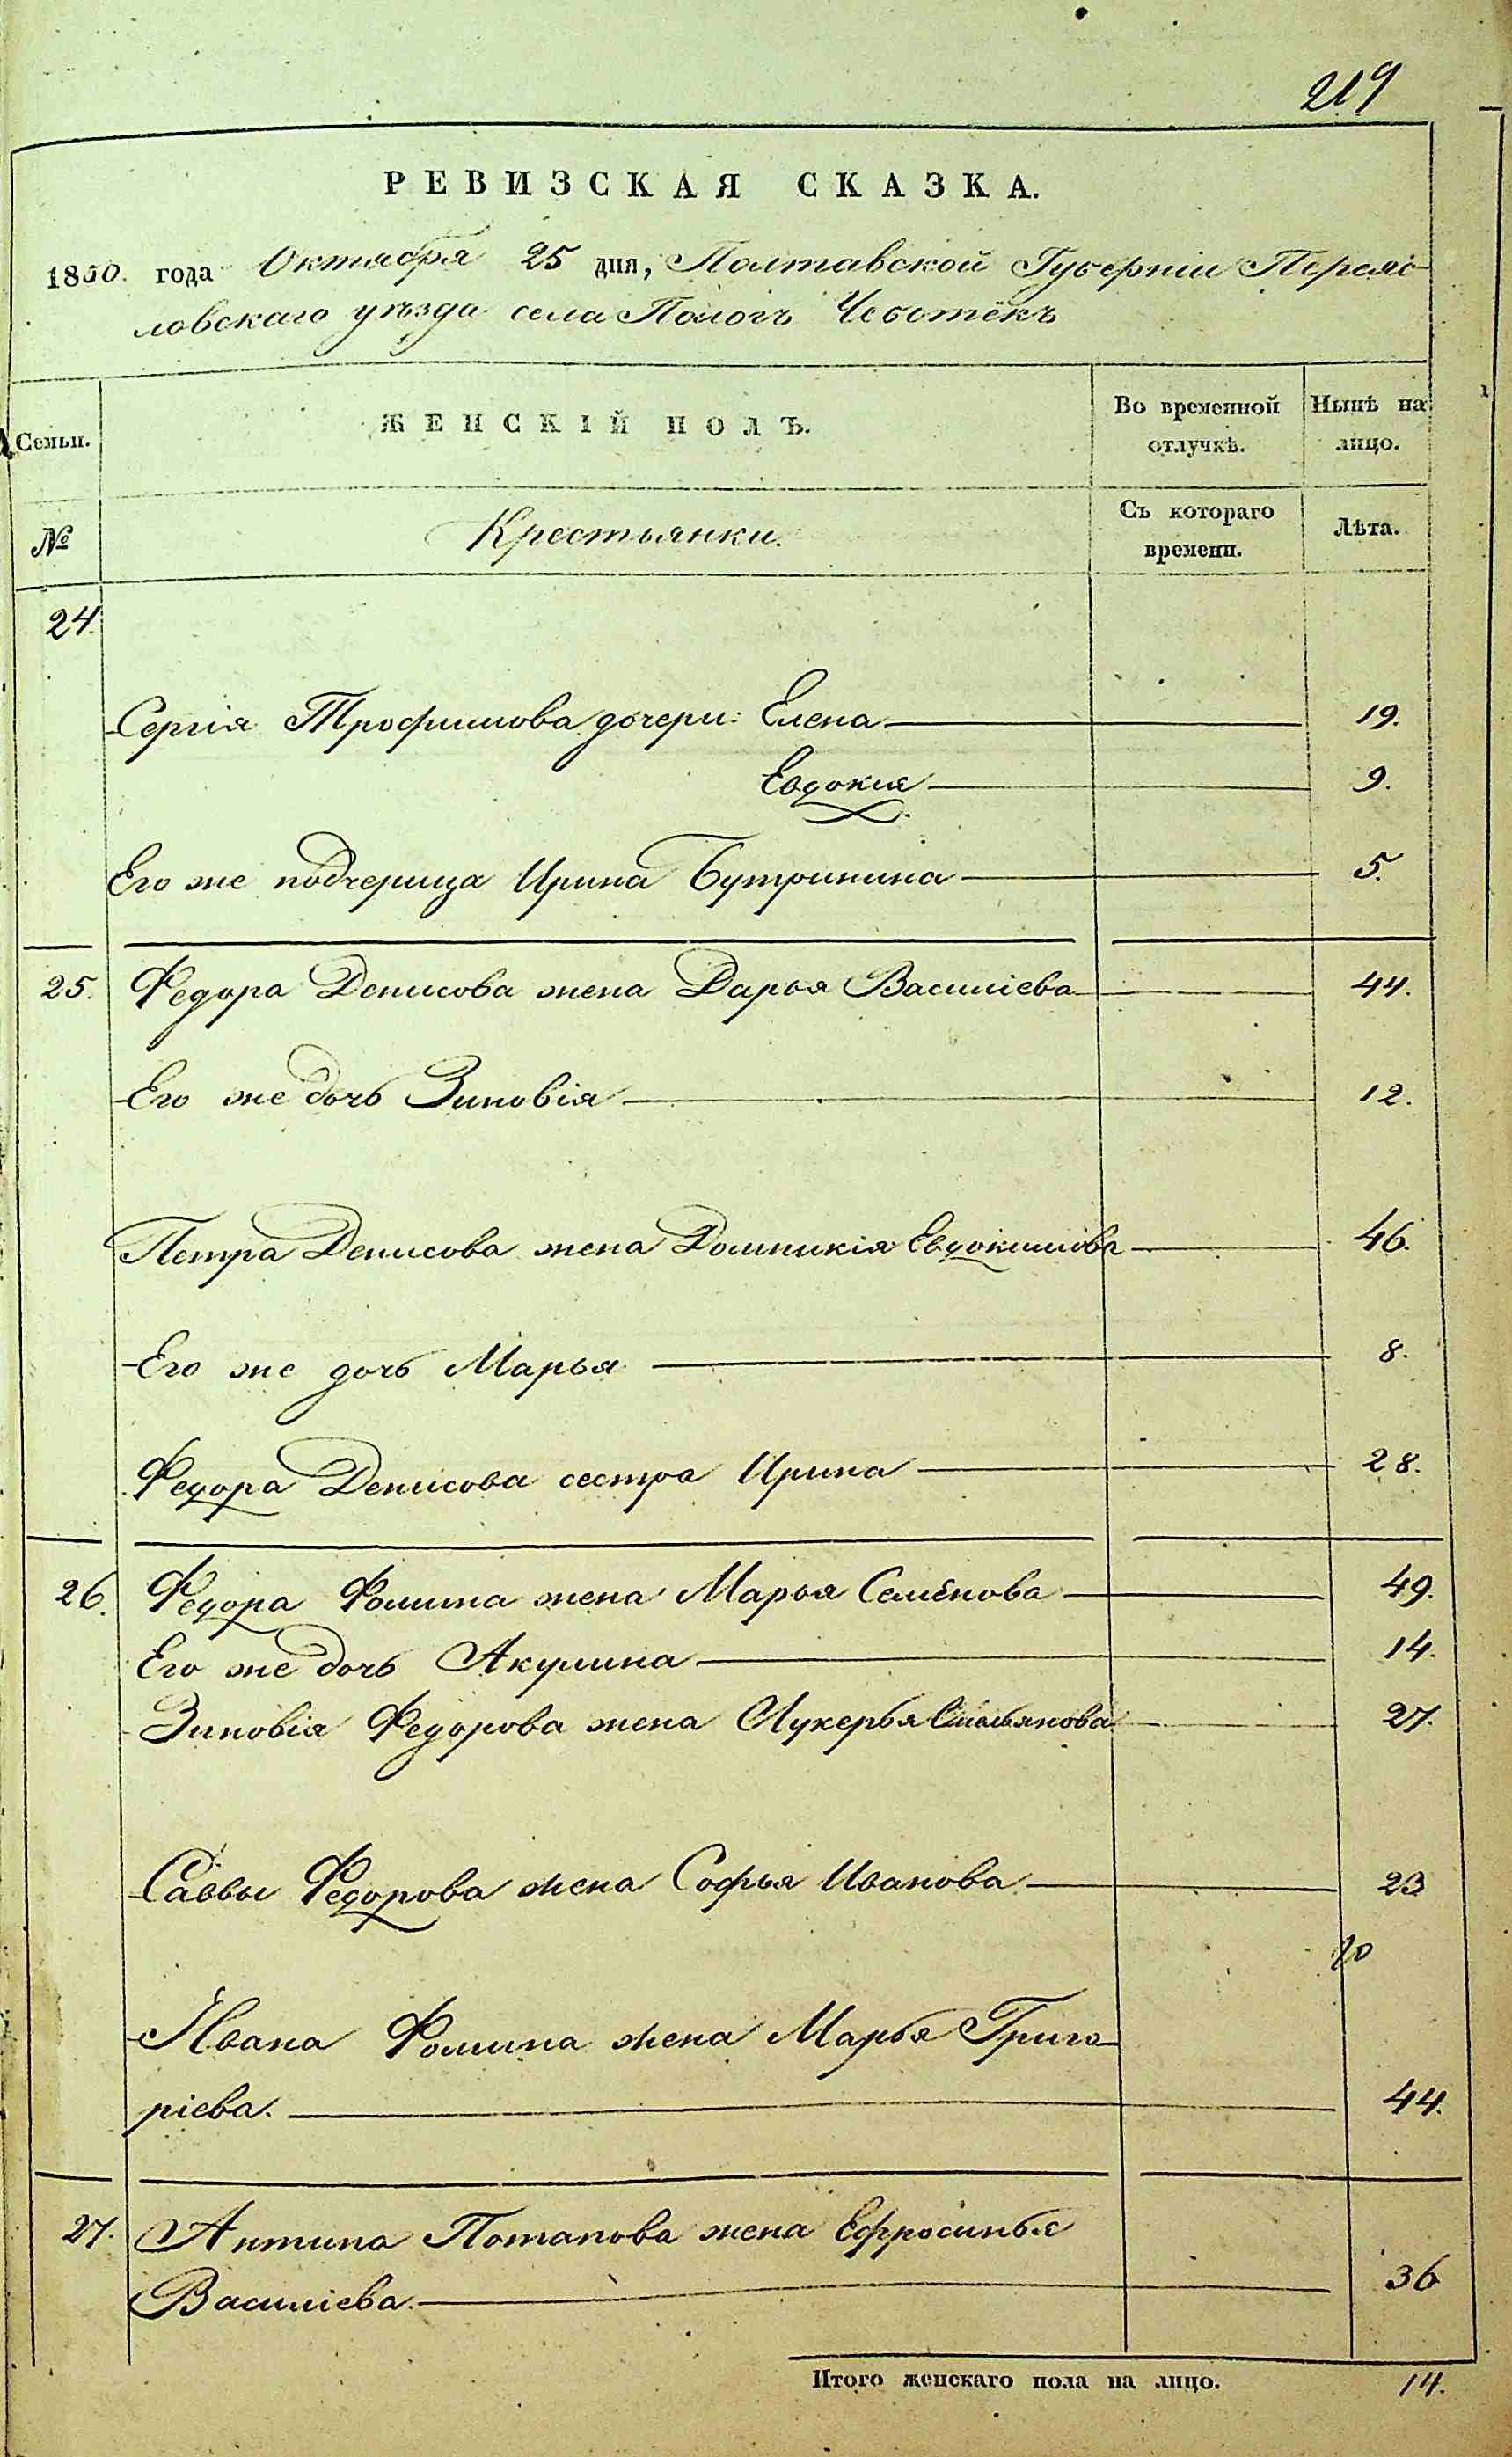 219
РЕВИЗСКАЯ СКАЗКА.
1850. года Октября 25 дня, Полтавской Губерніи Переяс-
ловскаго уѣзда села Пологъ Чеботёкъ
Семьи.
ЖЕНСКІЙ ПОЛЪ.
Во временной отлучкѣ.
Нынѣ на лицо.
№
Крестьянки.
Съ котораго времени.
Лѣта.
24.
Сергія Трофимова дочери: Елена 19.
Евдокия 9.
Его жеподчерица Ирина Бутринина 5.
25. Федора Денисова жена Дарья Василіева 44.
Его же дочь Зиновія 12.
Петра Денисова жена Домникія Евдокимова 46.
Его же дочь Марья 8.
Федора Денисова сестра Ирина 28.
26. Федора Фомина жена Марья Семёнова 49.
Его же дочь Акулина 14.
Зиновія Федорова жена Лукерья Емельянова 27.
Саввы Федорова жена Софья Иванова 23
10
Ивана Фомина жена Марья Григо-
ріева. 44.
27. Антипа Потапова жена Ефросинья
Василіева. 36
Итого женскаго пола на лицо. 14.